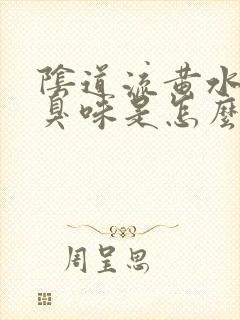 陰道流黃水
臭味是怎麼
周呈思